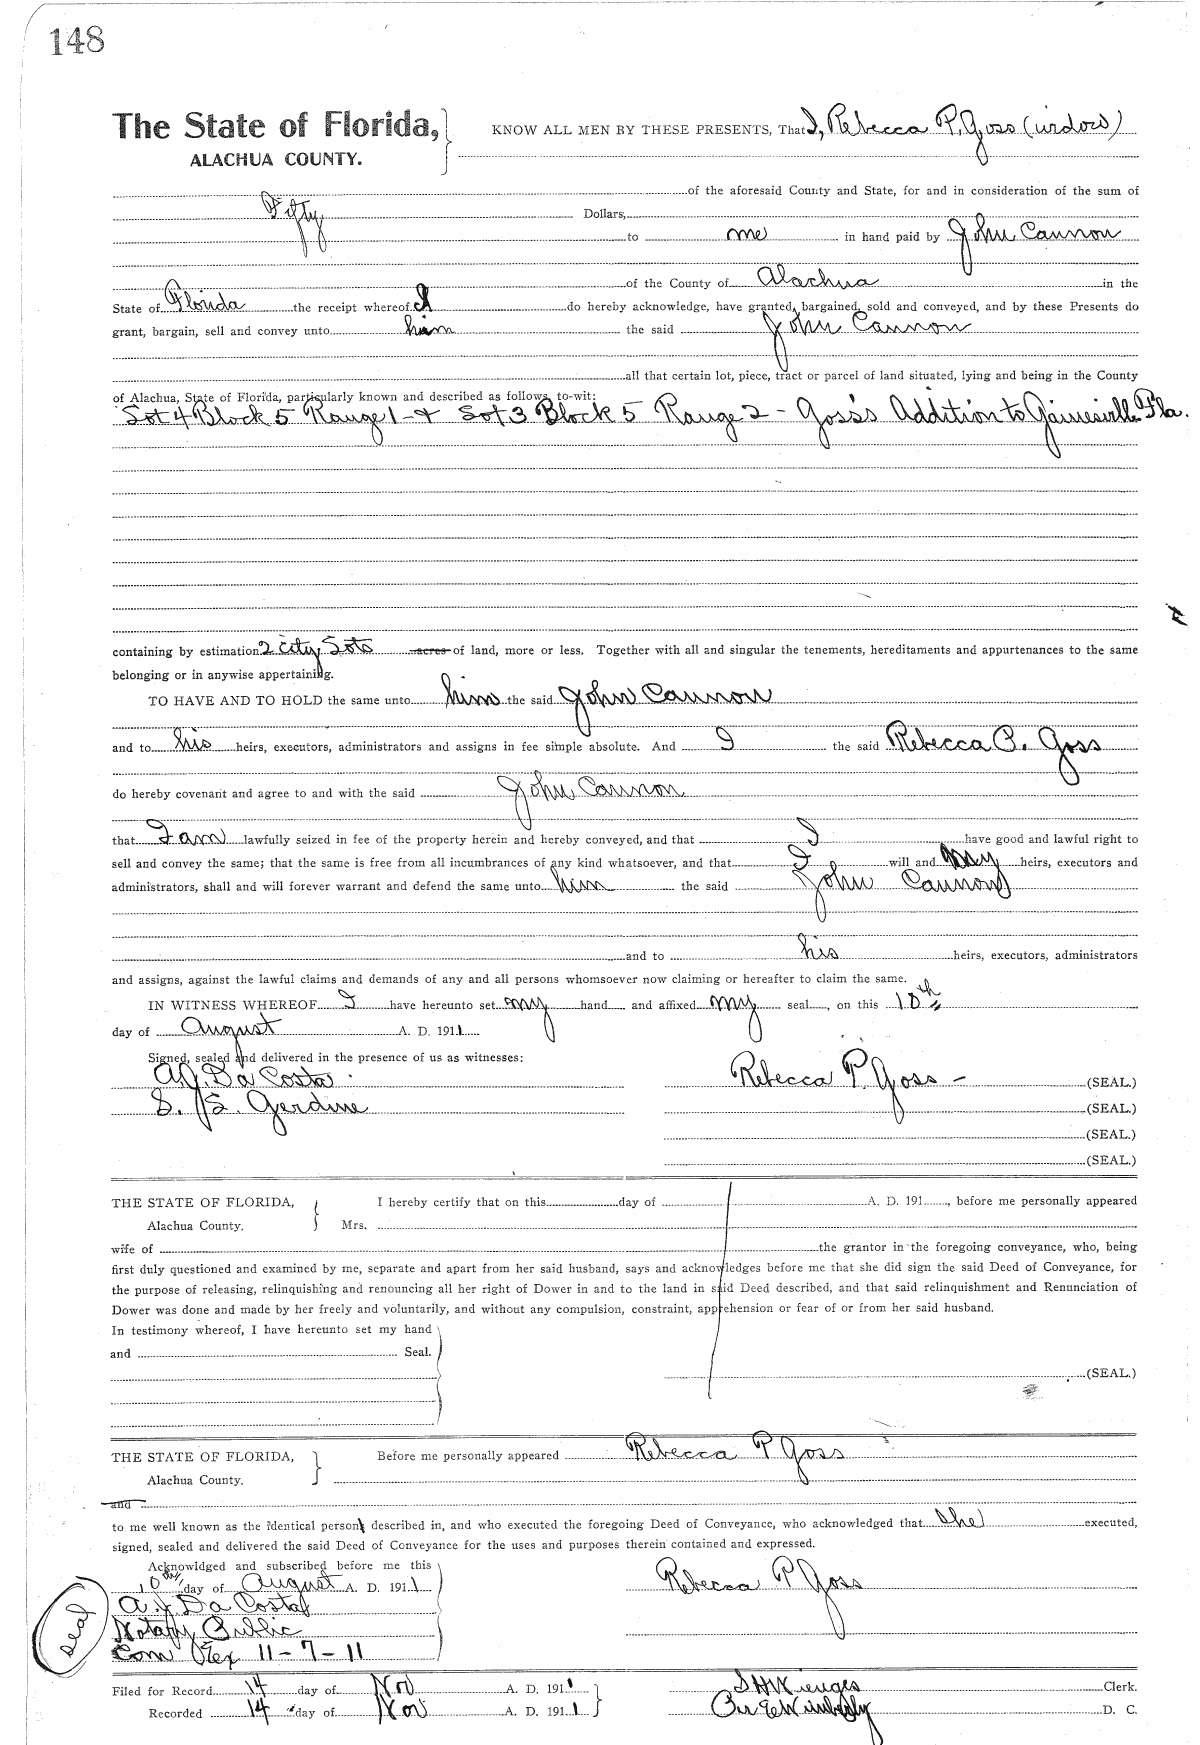 148
The State of Florida, KNOW ALL MEN BY THESE PRESENTS, That I, Rebecca P. Goss (widow)
ALACHUA COUNTY.
of the aforesaid County and State, for and in consideration of the sum of
Fifty Dollars,
to me in hand paid by John Cannon
of the County of Alachua in the
State of Florida the receipt whereof I do hereby acknowledge, have granted, bargained, sold and conveyed, and by these Presents do
grant, bargain, sell and convey unto him the said John Cannon
all that certain lot, piece, tract or parcel of land situated, lying and being in the County
of Alachua, State of Florida, particularly known and described as follows, to-wit:
Lot 4 Block 5 Range 1 - & Lot 3 Block 5 Range 2 - Goss's Addition to Gainesville Fla.
containing by estimation 2 city Lots acres of land, more or less. Together with all and singular the tenements, hereditaments and appurtenances to the same
belonging or in anywise appertaining.
TO HAVE AND TO HOLD the same unto him the said John Cannon
and to his heirs, executors, administrators and assigns in fee simple absolute. And I the said Rebecca P. Goss
do hereby covenant and agree to and with the said John Cannon
that I am lawfully seized in fee of the property herein and hereby conveyed, and that I have good and lawful right to
sell and convey the same; that the same is free from all incumbrances of any kind whatsoever, and that I will and my heirs, executors and
administrators, shall and will forever warrant and defend the same unto him the said John Cannon
and to his heirs, executors, administrators
and assigns, against the lawful claims and demands of any and all persons whomsoever now claiming or hereafter to claim the same.
IN WITNESS WHEREOF I have hereunto set my hand and affixed my seal, on this 10th
day of August A. D. 1911
Signed, sealed and delivered in the presence of us as witnesses:
A. J. Da Costa Rebecca P. Goss - (SEAL.)
S. S. Gerdine (SEAL.)
(SEAL.)
(SEAL.)
THE STATE OF FLORIDA, I hereby certify that on this day of A. D. 191 , before me personally appeared
Alachua County. Mrs.
wife of the grantor in the foregoing conveyance, who, being
first duly questioned and examined by me, separate and apart from her said husband, says and acknowledges before me that she did sign the said Deed of Conveyance, for
the purpose of releasing, relinquishing and renouncing all her right of Dower in and to the land in said Deed described, and that said relinquishment and Renunciation of
Dower was done and made by her freely and voluntarily, and without any compulsion, constraint, apprehension or fear of or from her said husband.
In testimony whereof, I have hereunto set my hand
and Seal.
(SEAL.)
THE STATE OF FLORIDA, Before me personally appeared Rebecca P Goss
Alachua County.
and
to me well known as the identical person described in, and who executed the foregoing Deed of Conveyance, who acknowledged that she executed,
signed, sealed and delivered the said Deed of Conveyance for the uses and purposes therein contained and expressed.
Acknowldged and subscribed before me this
10th day of August A. D. 1911 Rebecca P Goss
A. J. Da Costa
Seal
Notary Public
Com Ex 11-7-11
Filed for Record 14 day of Nov A. D. 1911 S H Wienges Clerk.
Recorded 14 day of Nov A. D. 1911 Wimberly D. C.